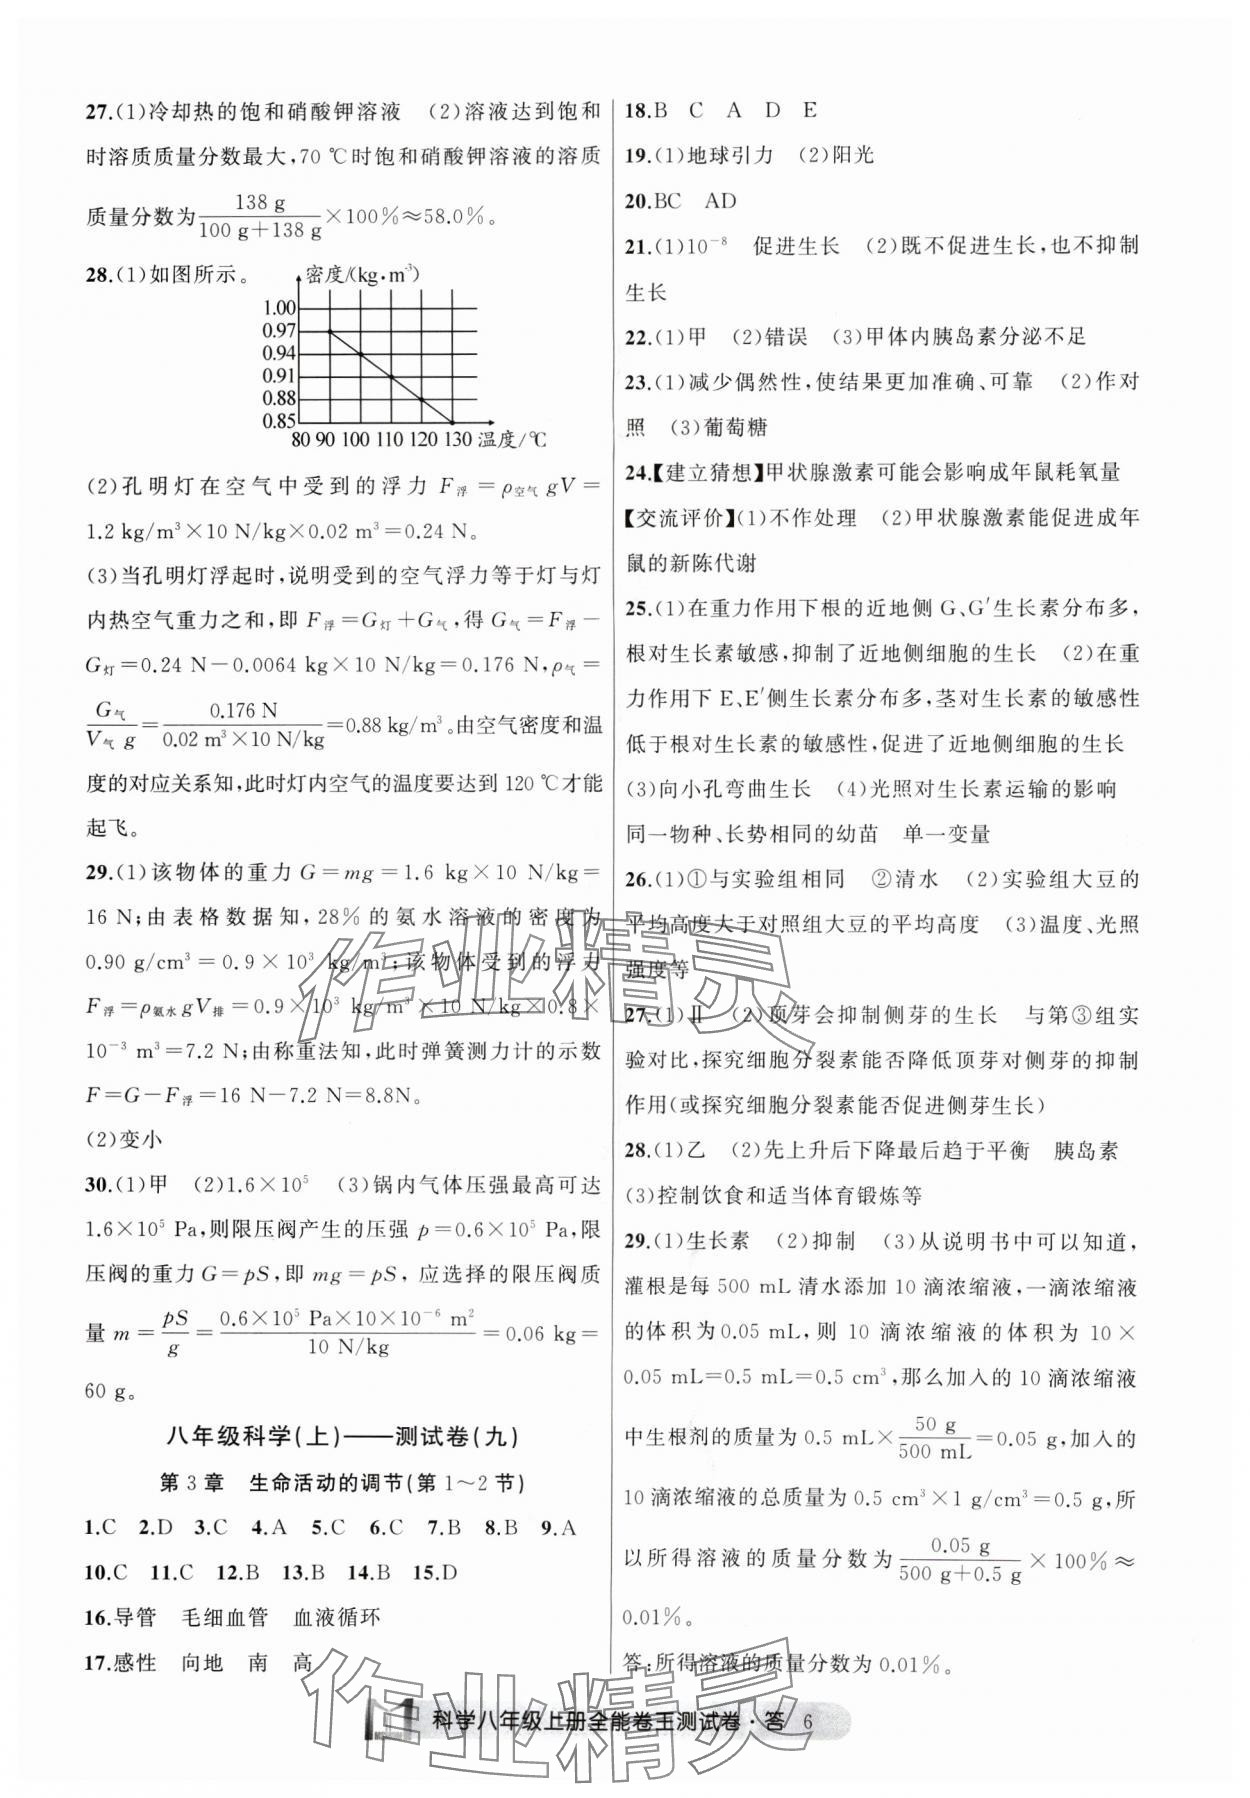 27.(1)冷却热的饱和硝酸钾溶液　(2)溶液达到饱和
时溶质质量分数最大,70 ℃时饱和硝酸钾溶液的溶质
质量分数为138 g/(100 g+138 g)×100%≈58.0%。
28.(1)如图所示。
密度/(kg·m⁻³)
1.00
0.97
0.94
0.91
0.88
0.85
80 90 100 110 120 130 温度/℃
(2)孔明灯在空气中受到的浮力 F浮=ρ空气gV=
1.2 kg/m³×10 N/kg×0.02 m³=0.24 N。
(3)当孔明灯浮起时,说明受到的空气浮力等于灯与灯
内热空气重力之和,即 F浮=G灯+G气,得 G气=F浮-
G灯=0.24 N-0.0064 kg×10 N/kg=0.176 N,ρ气=
G气/(V气 g)=0.176 N/(0.02 m³×10 N/kg)=0.88 kg/m³。由空气密度和温
度的对应关系知,此时灯内空气的温度要达到 120 ℃才能
起飞。
29.(1)该物体的重力 G=mg=1.6 kg×10 N/kg=
16 N;由表格数据知,28%的氨水溶液的密度为
0.90 g/cm³=0.9×10³ kg/m³;该物体受到的浮力
F浮=ρ氨水gV排=0.9×10³ kg/m³×10 N/kg×0.8×
10⁻³ m³=7.2 N;由称重法知,此时弹簧测力计的示数
F=G-F浮=16 N-7.2 N=8.8N。
(2)变小
30.(1)甲　(2)1.6×10⁵　(3)锅内气体压强最高可达
1.6×10⁵ Pa,则限压阀产生的压强 p=0.6×10⁵ Pa,限
压阀的重力 G=pS,即 mg=pS,应选择的限压阀质
量 m=pS/g=(0.6×10⁵ Pa×10×10⁻⁶ m²)/(10 N/kg)=0.06 kg=
60 g。
八年级科学(上)——测试卷(九)
第3章　生命活动的调节(第1～2节)
1.C　2.D　3.C　4.A　5.C　6.C　7.B　8.B　9.A
10.C　11.C　12.B　13.B　14.B　15.D
16.导管　毛细血管　血液循环
17.感性　向地　南　高
18.B　C　A　D　E
19.(1)地球引力　(2)阳光
20.BC　AD
21.(1)10⁻⁸　促进生长　(2)既不促进生长,也不抑制
生长
22.(1)甲　(2)错误　(3)甲体内胰岛素分泌不足
23.(1)减少偶然性,使结果更加准确、可靠　(2)作对
照　(3)葡萄糖
24.【建立猜想】甲状腺激素可能会影响成年鼠耗氧量
【交流评价】(1)不作处理　(2)甲状腺激素能促进成年
鼠的新陈代谢
25.(1)在重力作用下根的近地侧 G、G′生长素分布多,
根对生长素敏感,抑制了近地侧细胞的生长　(2)在重
力作用下 E、E′侧生长素分布多,茎对生长素的敏感性
低于根对生长素的敏感性,促进了近地侧细胞的生长
(3)向小孔弯曲生长　(4)光照对生长素运输的影响
同一物种、长势相同的幼苗　单一变量
26.(1)①与实验组相同　②清水　(2)实验组大豆的
平均高度大于对照组大豆的平均高度　(3)温度、光照
强度等
27.(1)Ⅱ　(2)顶芽会抑制侧芽的生长　与第③组实
验对比,探究细胞分裂素能否降低顶芽对侧芽的抑制
作用(或探究细胞分裂素能否促进侧芽生长)
28.(1)乙　(2)先上升后下降最后趋于平衡　胰岛素
(3)控制饮食和适当体育锻炼等
29.(1)生长素　(2)抑制　(3)从说明书中可以知道,
灌根是每 500 mL 清水添加 10 滴浓缩液,一滴浓缩液
的体积为0.05 mL,则 10 滴浓缩液的体积为 10×
0.05 mL=0.5 mL=0.5 cm³,那么加入的 10 滴浓缩液
中生根剂的质量为 0.5 mL×50 g/500 mL=0.05 g,加入的
10 滴浓缩液的总质量为 0.5 cm³×1 g/cm³=0.5 g,所
以所得溶液的质量分数为0.05 g/(500 g+0.5 g)×100%≈
0.01%。
答:所得溶液的质量分数为 0.01%。
作业精灵
作业精灵
科学八年级上册全能卷王测试卷·答　6